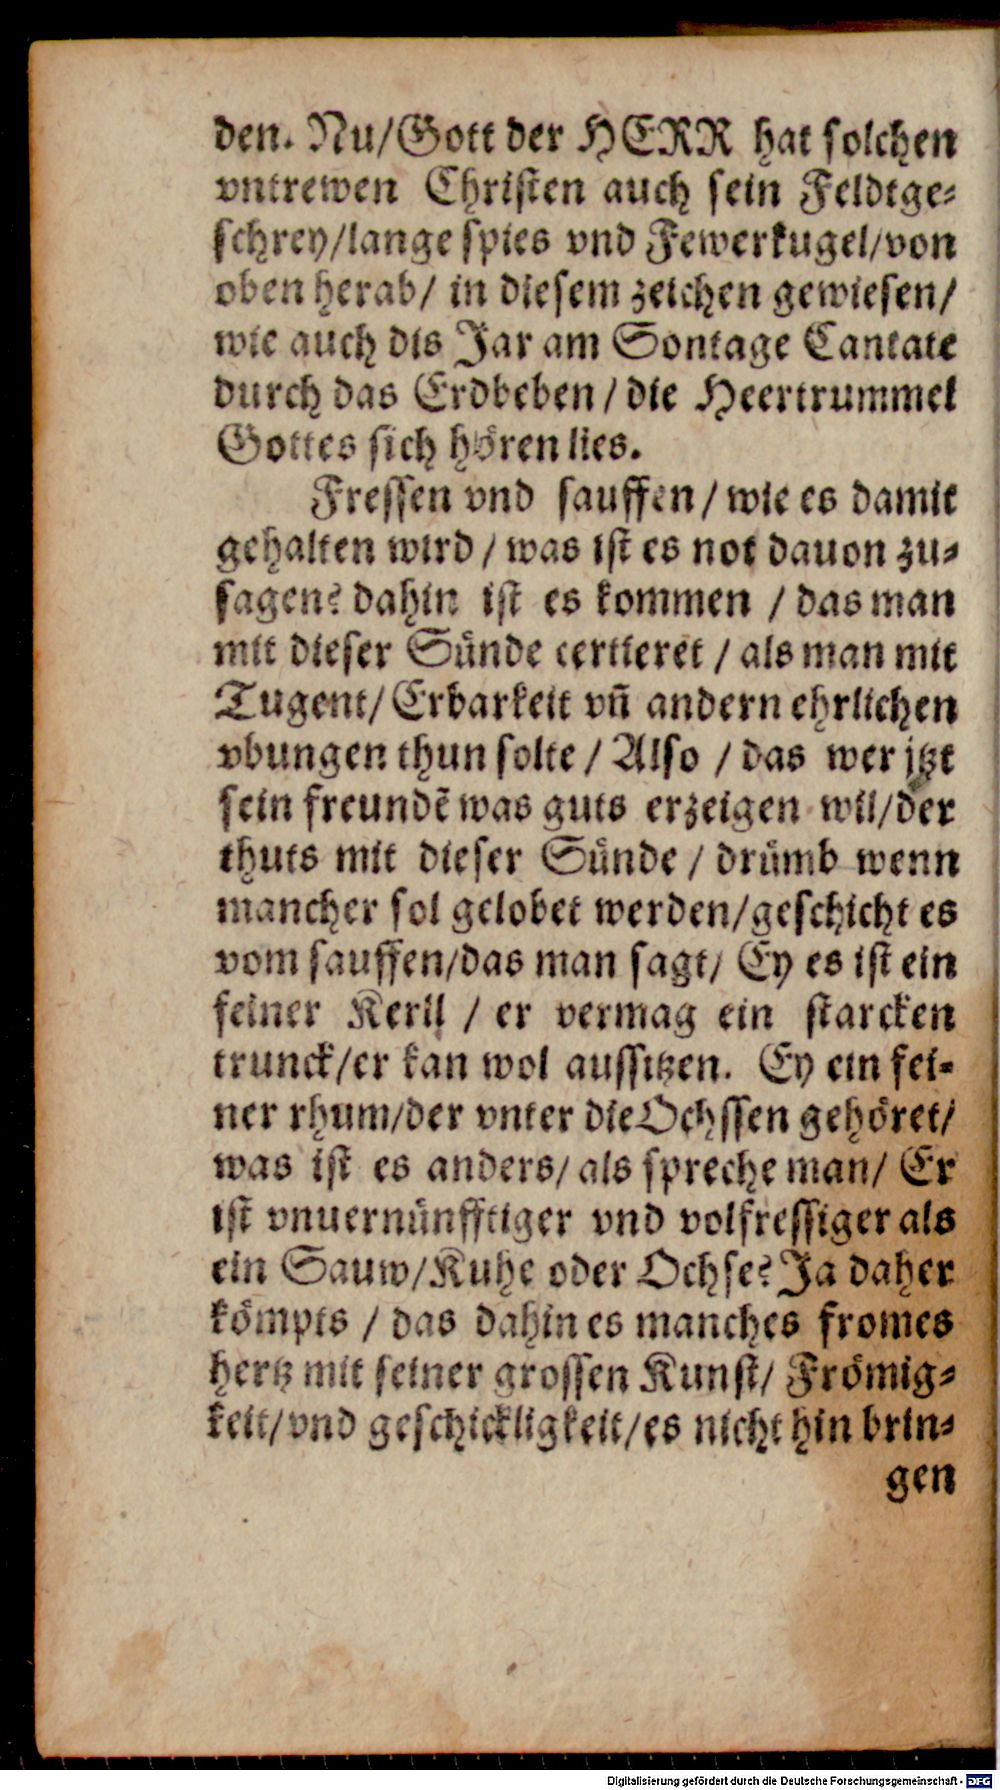 den. Nu/Gott der HERR hat solchen
vntrewen Christen auch sein Feldtge-
schrey/lange spies vnd Fewerkugel/von
oben herab/ in diesem zeichen gewiesen/
wie auch dis Jar am Sontage Cantate
durch das Erdbeben / die Heertrummel
Gottes sich hören lies.
Fressen vnd sauffen / wie es damit
gehalten wird / was ist es not dauon zu-
sagen? dahin ist es kommen / das man
mit dieser Sünde certieret / als man mit
Tugent/ Erbarkeit vñ andern ehrlichen
vbungen thun solte / Also / das wer jtzt
sein freundẽ was guts erzeigen wil/der
thuts mit dieser Sünde / drümb wenn
mancher sol gelobet werden/geschicht es
vom sauffen/das man sagt/ Ey es ist ein
feiner Kerll / er vermag ein starcken
trunck/er kan wol aussitzen. Ey ein fei-
ner rhum/der vnter die Ochssen gehöret/
was ist es anders/ als spreche man/ Er
ist vnuernünfftiger vnd volfressiger als
ein Sauw/Kuhe oder Ochse? Ja daher
kömpts / das dahin es manches fromes
hertz mit seiner grossen Kunst/ Frömig-
keit/vnd geschickligkeit/es nicht hin brin-
gen
Digitalisierung gefördert durch die Deutsche Forschungsgemeinschaft - DFG